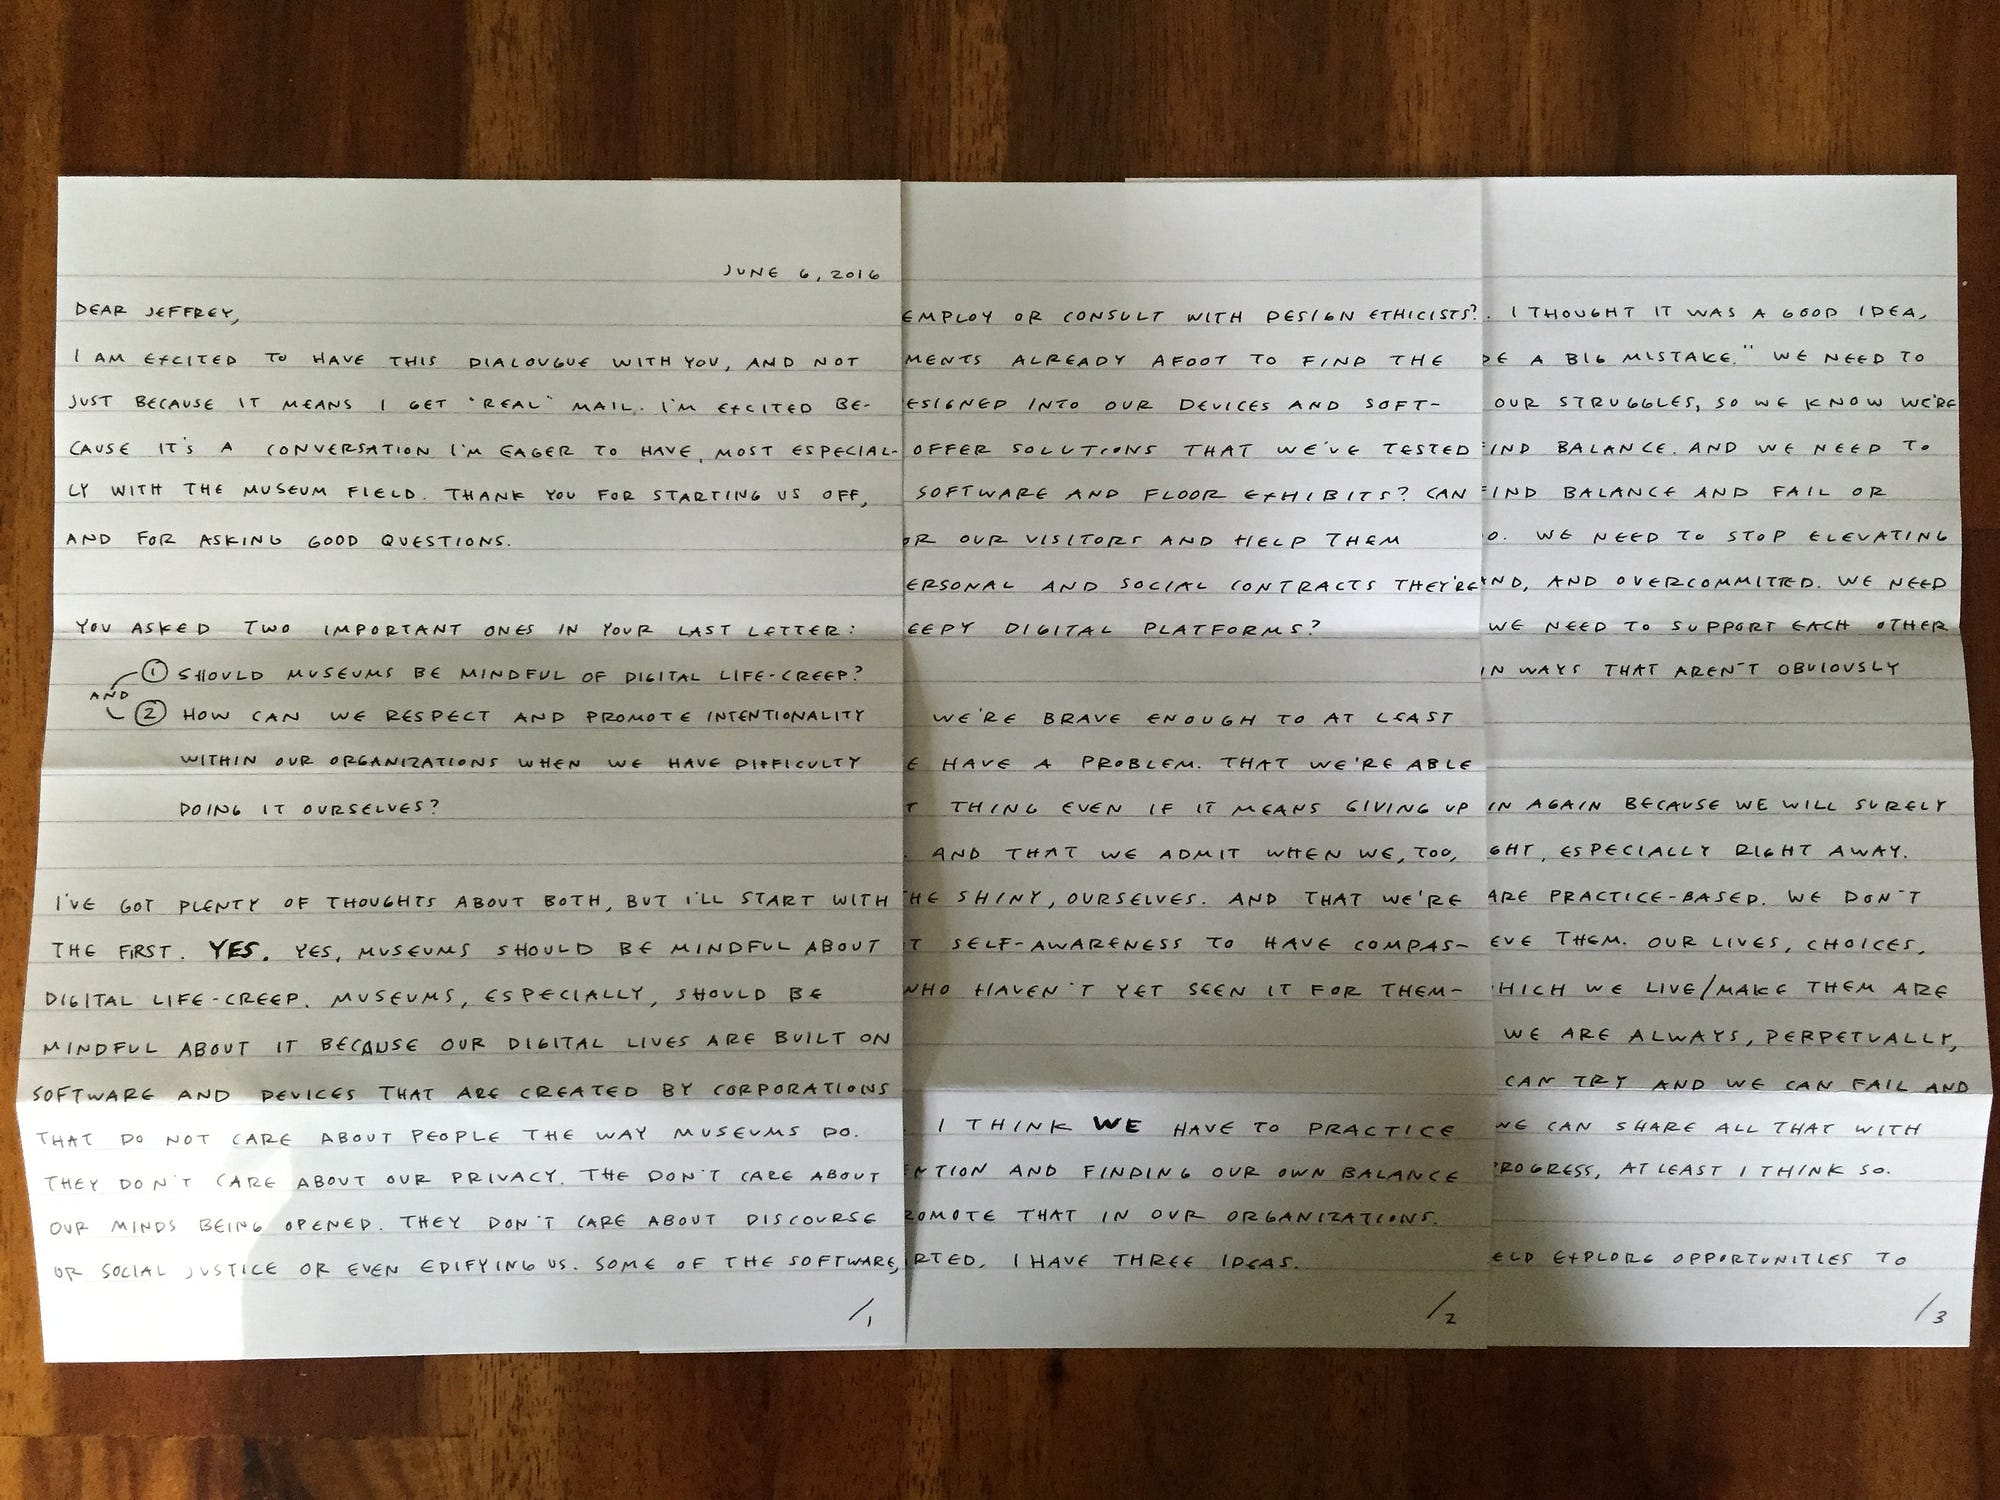 JUNE 6, 2016
DEAR JEFFREY,
I AM EXCITED TO HAVE THIS DIALOUGUE WITH YOU, AND NOT
JUST BECAUSE IT MEANS I GET "REAL" MAIL. I'M EXCITED BE-
CAUSE IT'S A CONVERSATION I'M EAGER TO HAVE, MOST ESPECIAL-
LY WITH THE MUSEUM FIELD. THANK YOU FOR STARTING US OFF,
AND FOR ASKING GOOD QUESTIONS.
YOU ASKED TWO IMPORTANT ONES IN YOUR LAST LETTER:
1 SHOULD MUSEUMS BE MINDFUL OF DIGITAL LIFE-CREEP?
AND
2 HOW CAN WE RESPECT AND PROMOTE INTENTIONALITY
WITHIN OUR ORGANIZATIONS WHEN WE HAVE DIFFICULTY
DOING IT OURSELVES?
I'VE GOT PLENTY OF THOUGHTS ABOUT BOTH, BUT I'LL START WITH
THE FIRST. YES. YES, MUSEUMS SHOULD BE MINDFUL ABOUT
DIGITAL LIFE-CREEP. MUSEUMS, ESPECIALLY, SHOULD BE
MINDFUL ABOUT IT BECAUSE OUR DIGITAL LIVES ARE BUILT ON
SOFTWARE AND DEVICES THAT ARE CREATED BY CORPORATIONS
THAT DO NOT CARE ABOUT PEOPLE THE WAY MUSEUMS DO.
THEY DON'T CARE ABOUT OUR PRIVACY. THE DON'T CARE ABOUT
OUR MINDS BEING OPENED. THEY DON'T CARE ABOUT DISCOURSE
OR SOCIAL JUSTICE OR EVEN EDIFYING US. SOME OF THE SOFTWARE,
/1
EMPLOY OR CONSULT WITH DESIGN ETHICISTS?
MENTS ALREADY AFOOT TO FIND THE
ESIGNED INTO OUR DEVICES AND SOFT-
OFFER SOLUTIONS THAT WE'VE TESTED
SOFTWARE AND FLOOR EXHIBITS? CAN
OR OUR VISITORS AND HELP THEM
ERSONAL AND SOCIAL CONTRACTS THEY'RE
EEPY DIGITAL PLATFORMS?
WE'RE BRAVE ENOUGH TO AT LEAST
E HAVE A PROBLEM. THAT WE'RE ABLE
T THING EVEN IF IT MEANS GIVING UP
. AND THAT WE ADMIT WHEN WE, TOO,
HE SHINY, OURSELVES. AND THAT WE'RE
T SELF-AWARENESS TO HAVE COMPAS-
WHO HAVEN'T YET SEEN IT FOR THEM-
I THINK WE HAVE TO PRACTICE
NTION AND FINDING OUR OWN BALANCE
ROMOTE THAT IN OUR ORGANIZATIONS.
RTED, I HAVE THREE IDEAS.
/2
. I THOUGHT IT WAS A GOOD IDEA,
DE A BIG MISTAKE." WE NEED TO
OUR STRUGGLES, SO WE KNOW WE'RE
FIND BALANCE. AND WE NEED TO
FIND BALANCE AND FAIL OR
O. WE NEED TO STOP ELEVATING
AND, AND OVERCOMMITTED. WE NEED
WE NEED TO SUPPORT EACH OTHER
IN WAYS THAT AREN'T OBVIOUSLY
IN AGAIN BECAUSE WE WILL SURELY
GHT, ESPECIALLY RIGHT AWAY.
ARE PRACTICE-BASED. WE DON'T
EVE THEM. OUR LIVES, CHOICES,
HICH WE LIVE/MAKE THEM ARE
WE ARE ALWAYS, PERPETUALLY,
CAN TRY AND WE CAN FAIL AND
WE CAN SHARE ALL THAT WITH
PROGRESS, AT LEAST I THINK SO.
ELD EXPLORE OPPORTUNITIES TO
/3